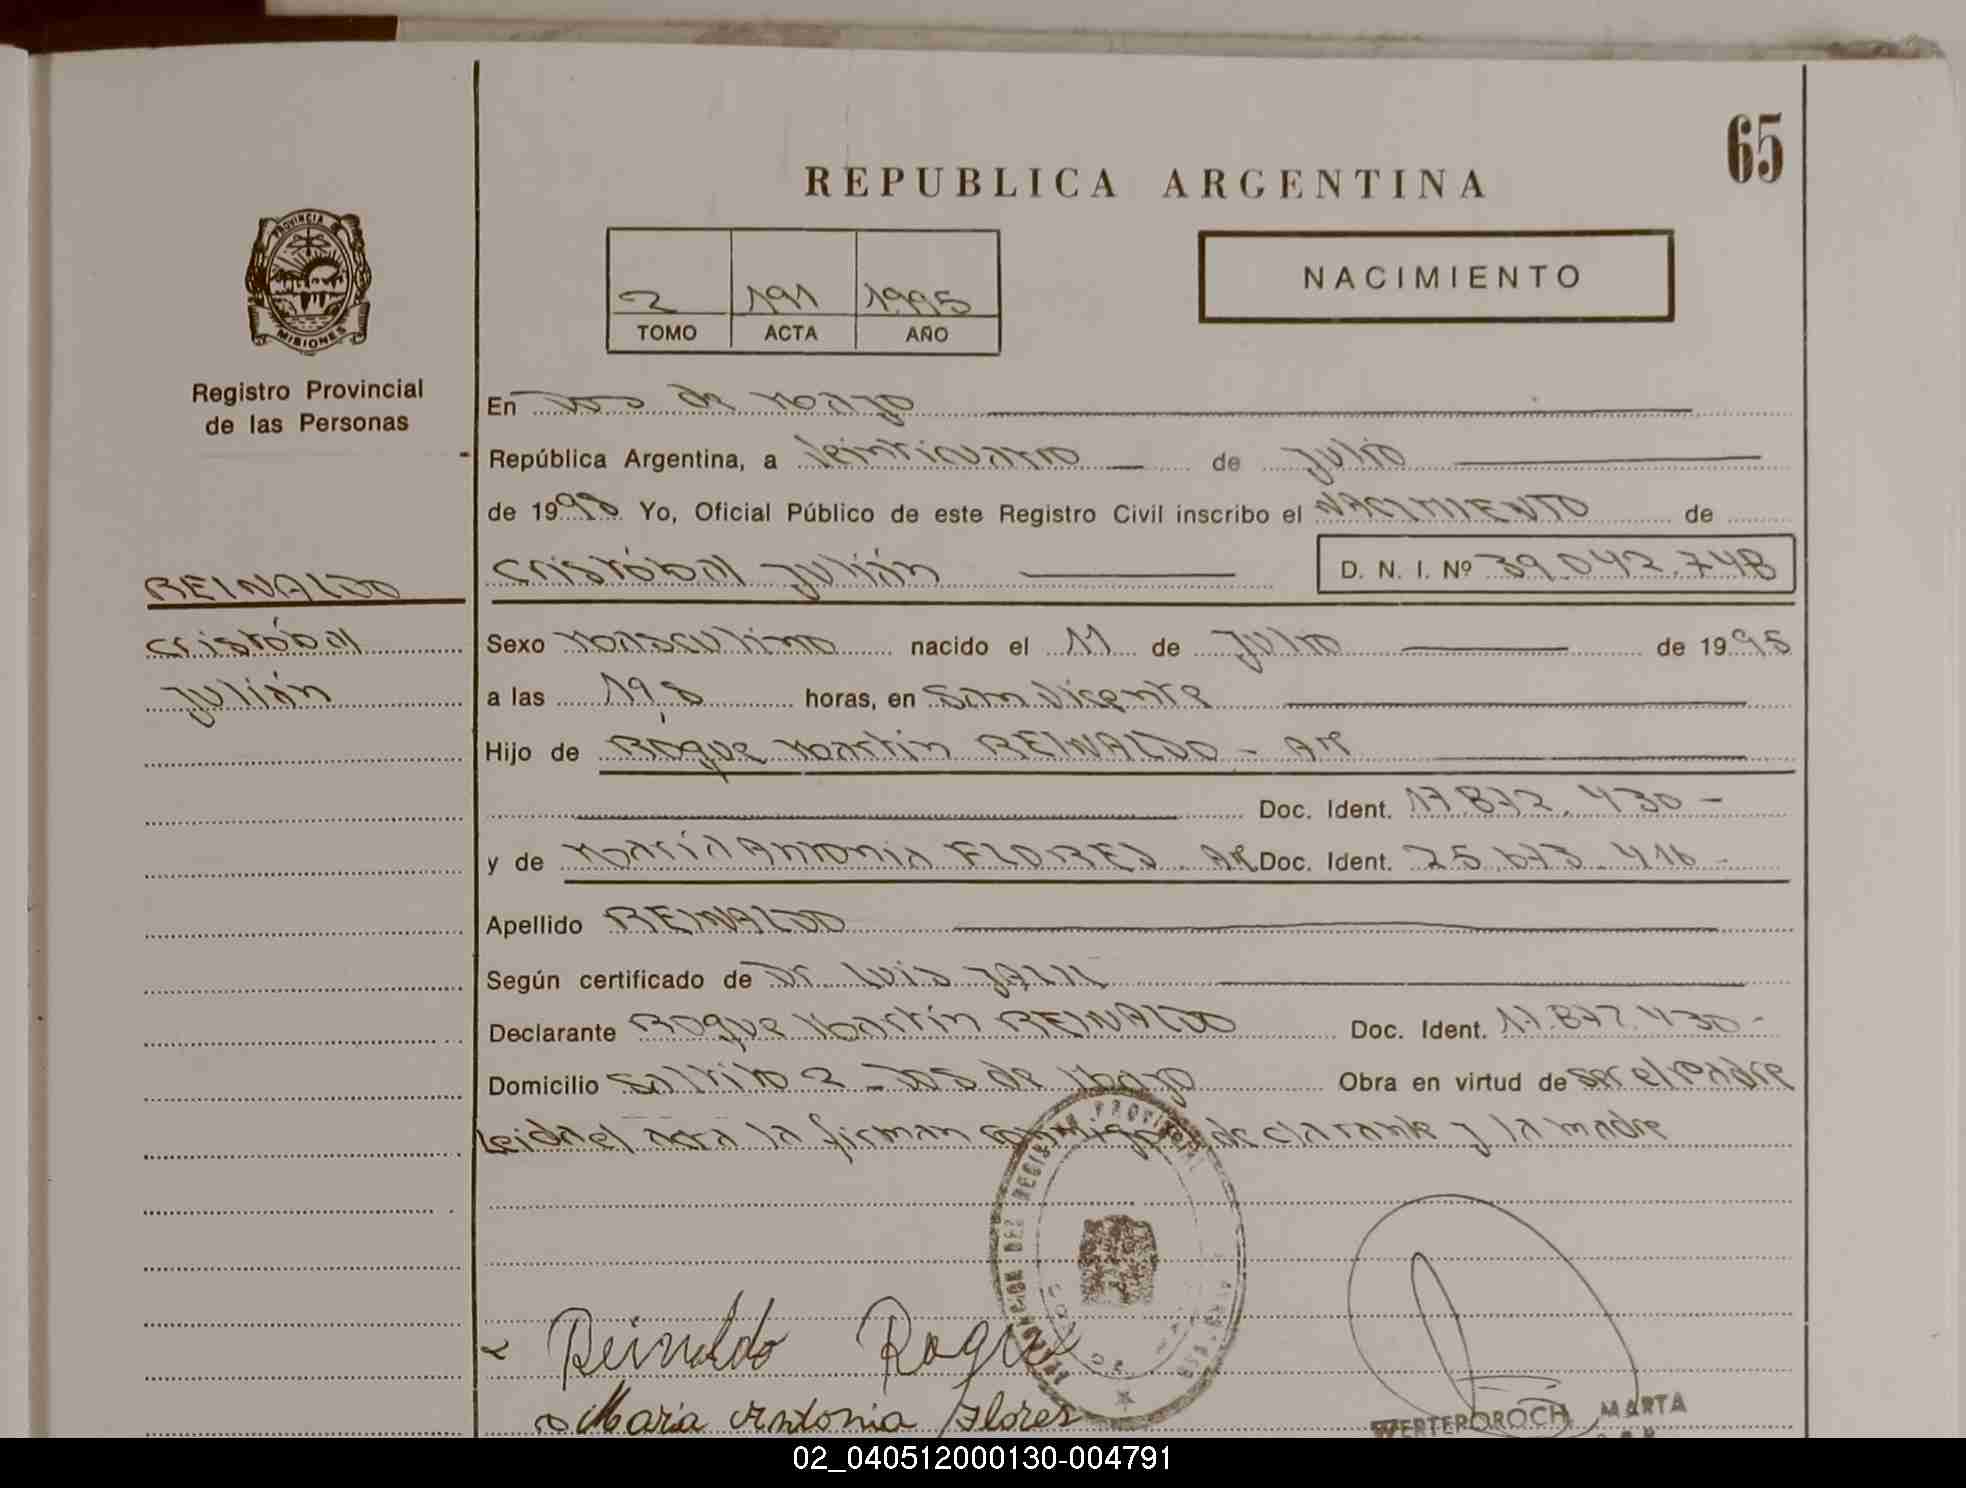 65
REPUBLICA ARGENTINA
PROVINCIA DE
MISIONES
Registro Provincial
de las Personas
2 191 1995
TOMO ACTA AÑO
NACIMIENTO
En Dos de Mayo
República Argentina, a Veinticuatro de Julio
de 1995 Yo, Oficial Público de este Registro Civil inscribo el NACIMIENTO de
REINALDO
Cristóbal Julián D. N. I. Nº 39.042.748
Cristóbal
Julián
Sexo Masculino nacido el 11 de Julio de 1995
a las horas, en San Vicente
Hijo de Roque Martín REINALDO - Ar
Doc. Ident. 17.872.430-
y de María Antonia FLORES Ar Doc. Ident. 25.673.416-
Apellido REINALDO
Según certificado de Dr. Luis
Declarante Roque Martín REINALDO Doc. Ident. 17.872.430-
Domicilio Saltito 2 - Dos de Mayo Obra en virtud de ser el padre
Leida el acta la firman conmigo declarante y la madre
Reinaldo Roque
Maria Antonia Flores
WERTEROROCH, MARTA
02_040512000130-004791